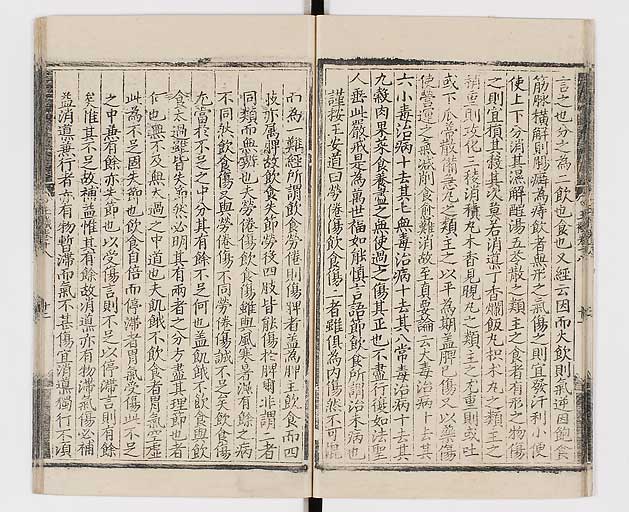 言之也分之為二飲也食也又經云因而大飲則氣逆因飽食
筋脉橫解則腸癖為痔飲者無形之氣傷之則宜發汗利小便
使上下分消其濕解酲湯五苓散之類主之食者有形之物傷
之則宜損其穀其次莫若消導丁香爛飯丸枳朮丸之類主之
稍重則攻化三稜消積丸木香見晛丸之類主之尤重則或吐
或下瓜蔕散備急丸之類主之以平為期盖脾已傷又以藥傷
使營運之氣减削食愈難消故至真要論云大毒治病十去其
六小毒治病十去其七無毒治病十去其八常毒治病十去其
九穀肉果菜食養盡之無使過之傷其正也不盡行復如法聖
人垂此嚴戒是為萬世福如能慎言語節飲食所謂治未病也
謹按王安道曰勞倦傷飲食傷二者雖俱為內傷然不可混
而為一難經所謂飲食勞倦則傷脾者盖為脾主飲食而四
肢亦屬脾故飲食失節勞役四肢皆能傷於脾爾非謂二者
同類而無辨也夫勞倦傷飲食傷雖與風寒暑濕有餘之病
不同然飲食傷又與勞倦傷不同勞倦傷誠不足矣飲食傷
尤當於不足之中分其有餘不足何也盖飢餓不飲食與飲
食太過雖皆失節然必明其有兩者之分方盡其理節也者
何也無不及無太過之中道也夫飢餓不飲食者胃氣空虛
此為不足固失節也飲食自倍而停滯者胃氣受傷此不足
之中兼有餘亦失節也以受傷言則不足以停滯言則有餘
矣惟其不足故補益惟其有餘故消導亦有物滯氣傷必補
益消導兼行者亦有物暫滯而氣不甚傷宜消導獨行不須